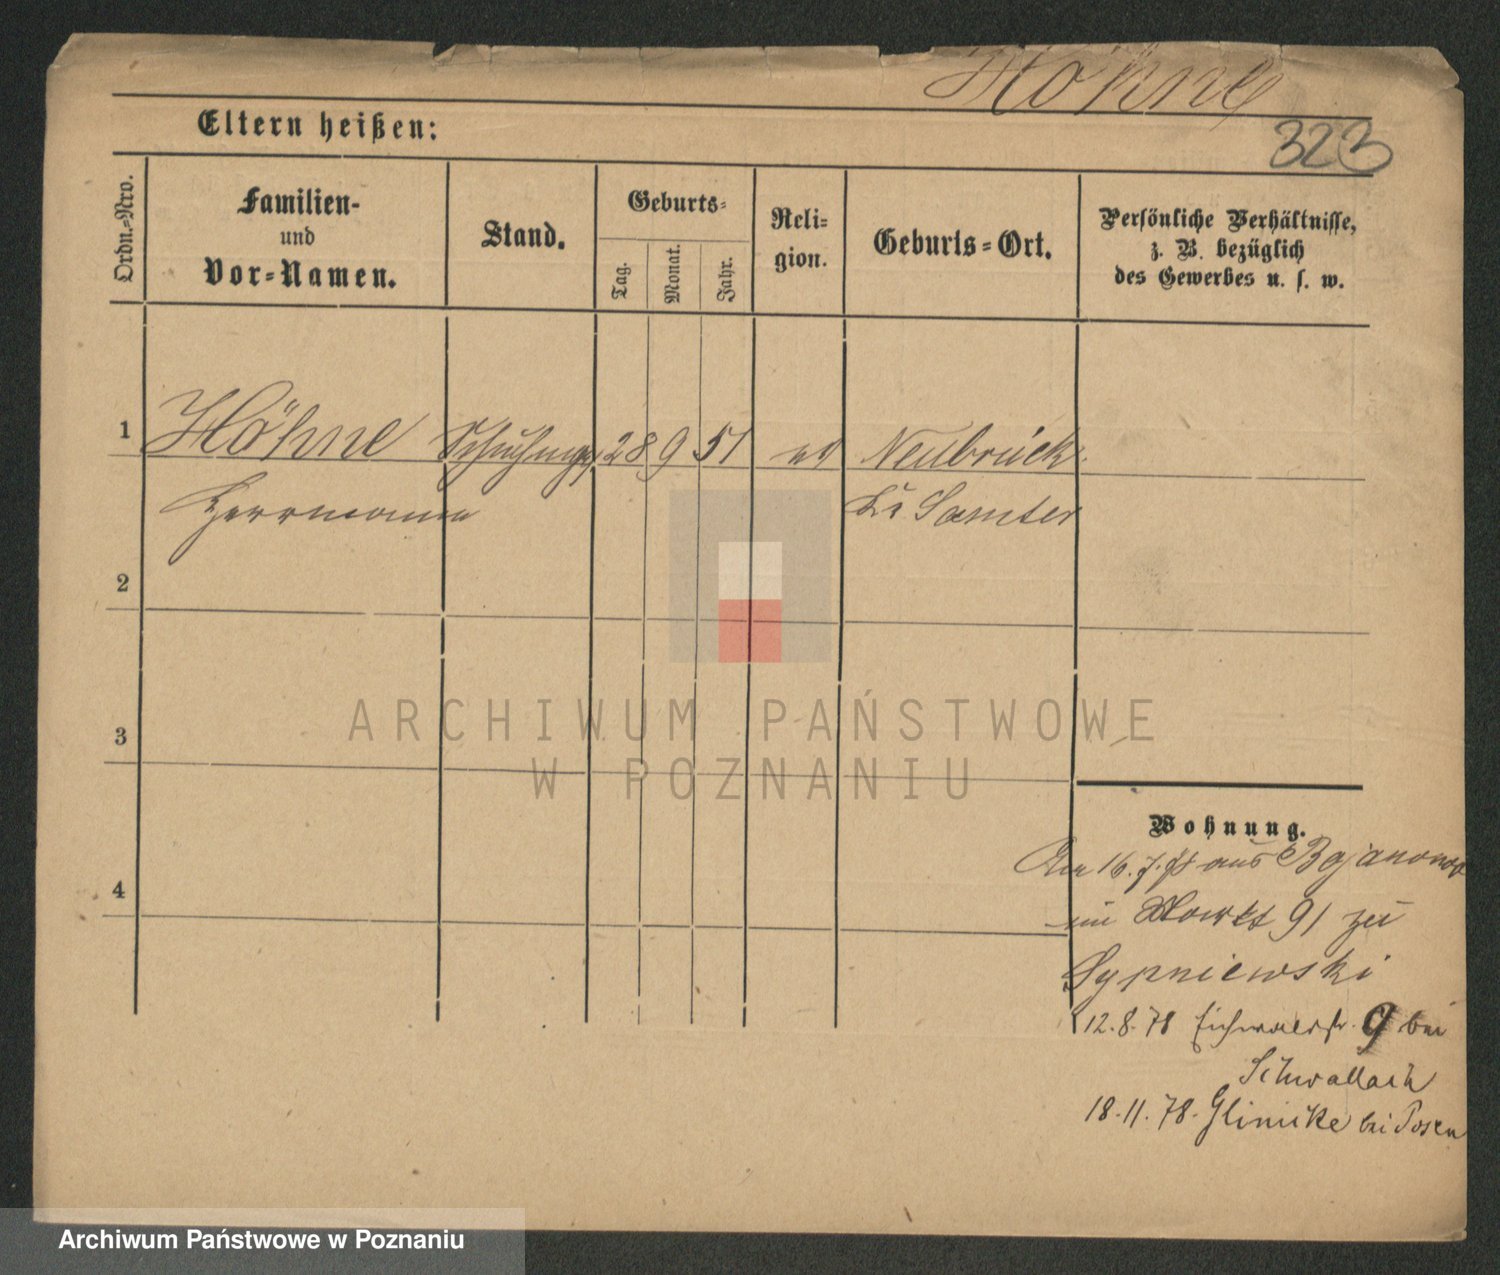 Höhne
323
Eltern heißen:
Ordn.-Nro.
Familien-
und
Vor-Namen.
Stand.
Geburts-
Tag.
Monat.
Jahr.
Reli-
gion.
Geburts-Ort.
Persönliche Verhältnisse,
z. B. bezüglich
des Gewerbes u. s. w.
1 Höhne 28 9 51 Neubrück
Herrmann Kr Samter
2
3
4
ARCHIWUM PAŃSTWOWE
W POZNANIU
Wohnung.
16. 7. 78 aus Bojanowo
im Markt 91 zu
Sypniewski
12.8.78 Eichwaldstr. 9 bei
Schwallach
18.11.78. Glinicke bei Posen
Archiwum Państwowe w Poznaniu